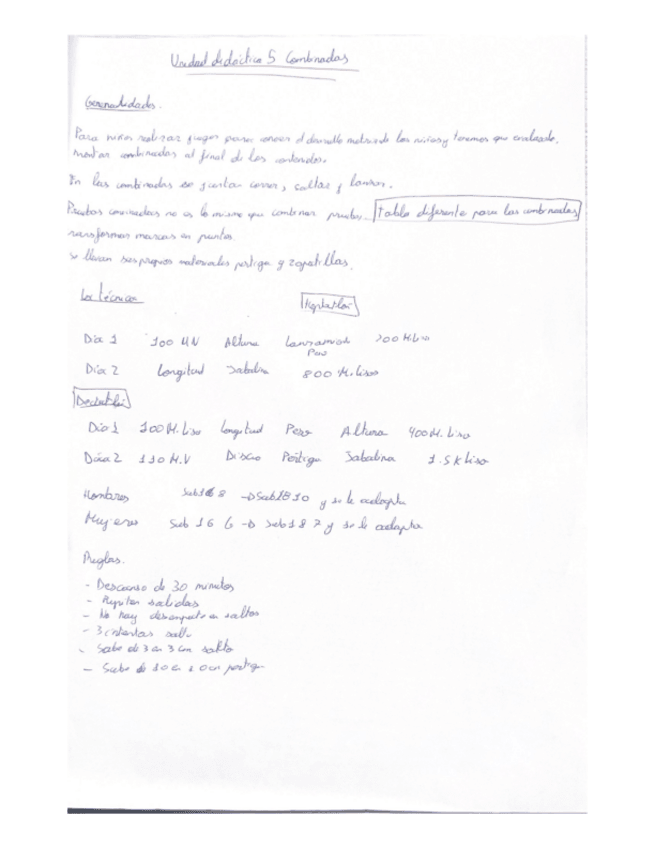 Unidad didáctica 5 Combinadas
Generalidades.
Para niños realizar juegos para conocer el desarrollo motriz de los niños y tenemos que enseñando,
montar combinadas al final de los contenidos.
En las combinadas se juntan correr, saltar y lanzar.
Pruebas combinadas no es lo mismo que combinar pruebas. tabla diferente para las combinadas
transformar marcas en puntos
se llevan sus propios materiales pertiga y zapatillas.
La técnica Heptatlón
Día 1 100 M.V Altura Lanzamiento Peso 200 M.Liso
Día 2 Longitud Jabalina 800 M.lisos
Decatlón
Día 1 100 M.Liso Longitud Peso Altura 400 M. Liso
Día 2 110 M.V Disco Pértiga Jabalina 1.5 K liso
Hombres Sub16 8 → Sub18 10 y se le adapta
Mujeres Sub 16 6 → Sub 18 7 y se le adapta
Reglas.
- Descanso de 30 minutos
- salidas
- No hay desempate en saltos
- 3 intentos salto
- Sube de 3 en 3 cm salto
- Sube de 10 en 10 cm pertiga